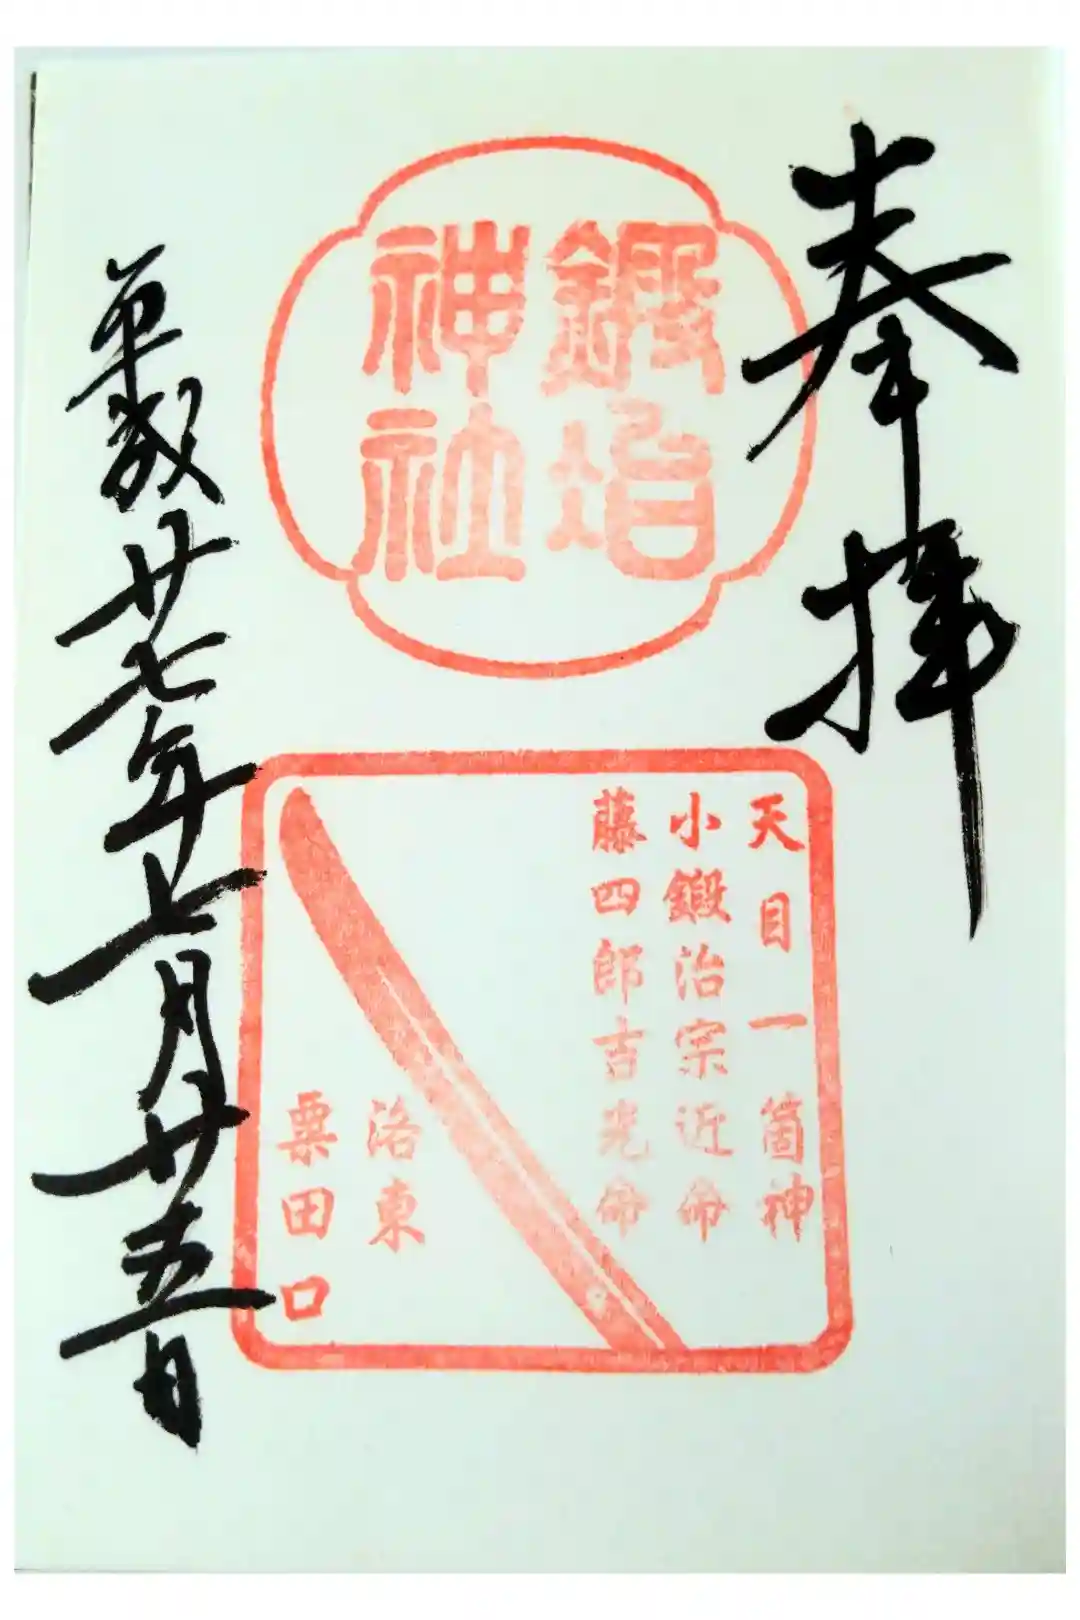 奉拝
鍛冶
神社
天目一箇神
小鍛治宗近命
藤四郎吉光命
洛東
粟田口
平成廿七年七月廿五日